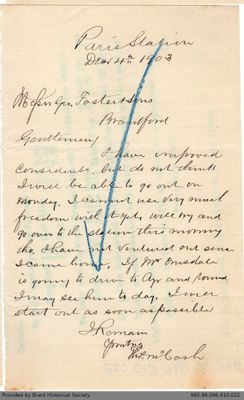 Paris Station
Dec 4th 1903
Messrs Geo. Foster & Sons
Brantford
Gentlemen,
I have improved
considerably but do not think
I will be able to go out on
Monday. I cannot use very much
freedom with it yet, will try and
go over to the station this morning
tho. I have not ventured out since
I came home. If Mr
is going to drive to Ayr and round
I may see him to day. I will
start out as soon as possible
I Remain
Yours truly
Thos McCosh
Provided by Brant Historical Society
985.86.096.010.022